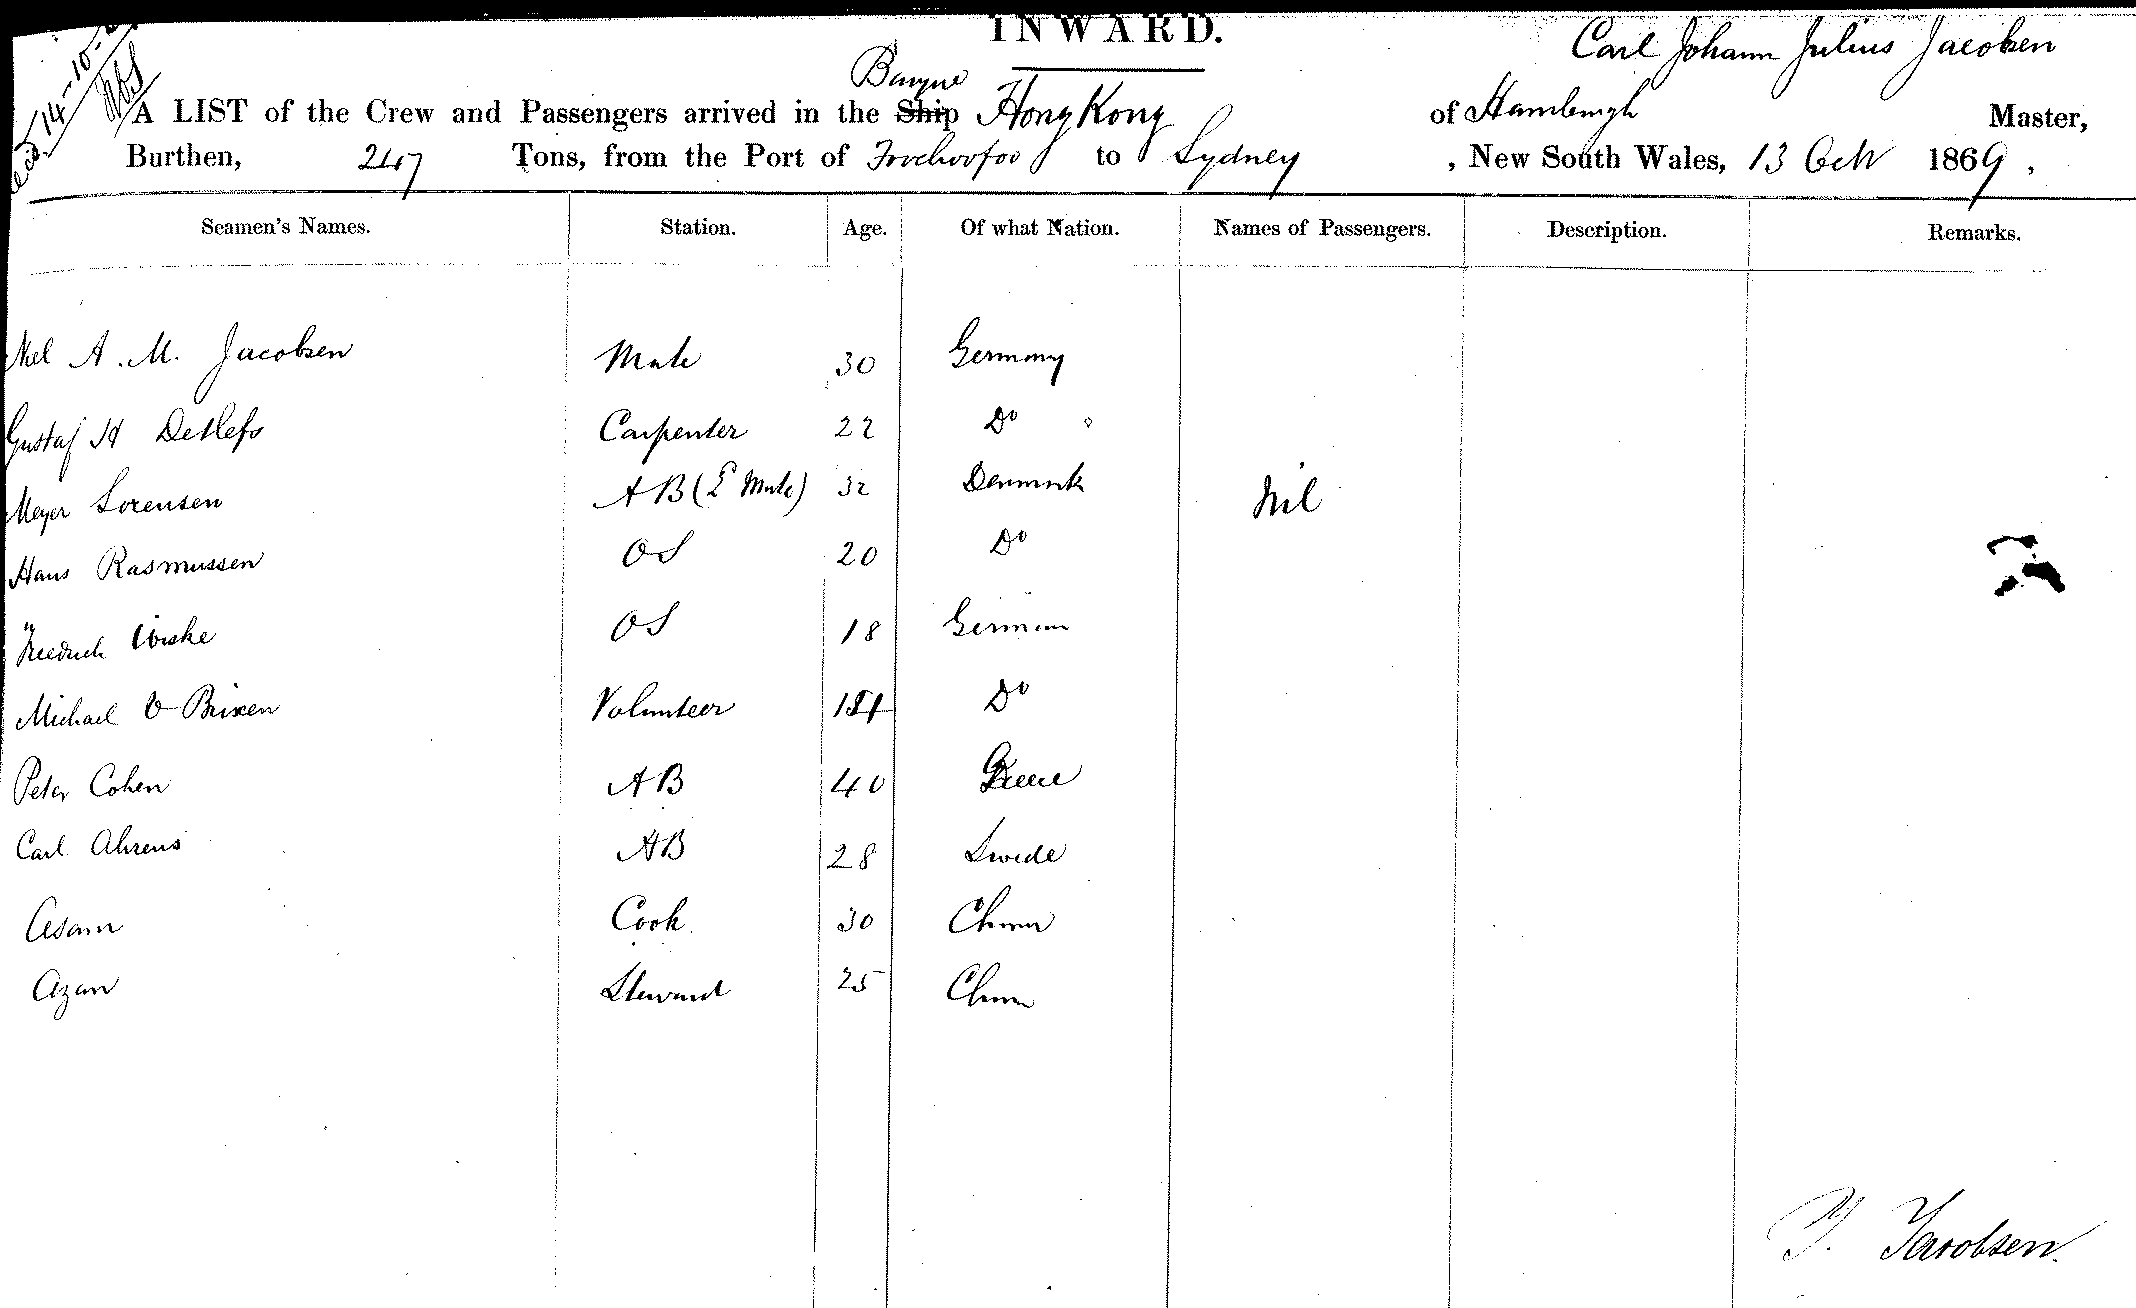 INWARD.
Carl Johann Julius Jacobsen
Barque
A LIST of the Crew and Passengers arrived in the Ship Hong Kong of Hamburgh Master,
Burthen, 247 Tons, from the Port of Foochoofoo to Sydney, New South Wales, 13 Octr 1869,
Seamen's Names. Station. Age. Of what Nation. Names of Passengers. Description. Remarks.
A. M. Jacobsen Mate 30 Germany
Gustaf H Detlefs Carpenter 22 Do
Meyer Sorensen AB (2 Mate) 32 Denmark Nil
Hans Rasmussen OS 20 Do
Friedrich OS 18 German
Michael O Brixen Volunteer Do
Peter Cohen AB 40 Greece
Carl Ahrens AB 28 Swede
Asam Cook 30 China
Azan Steward 25 China
J. Jacobsen